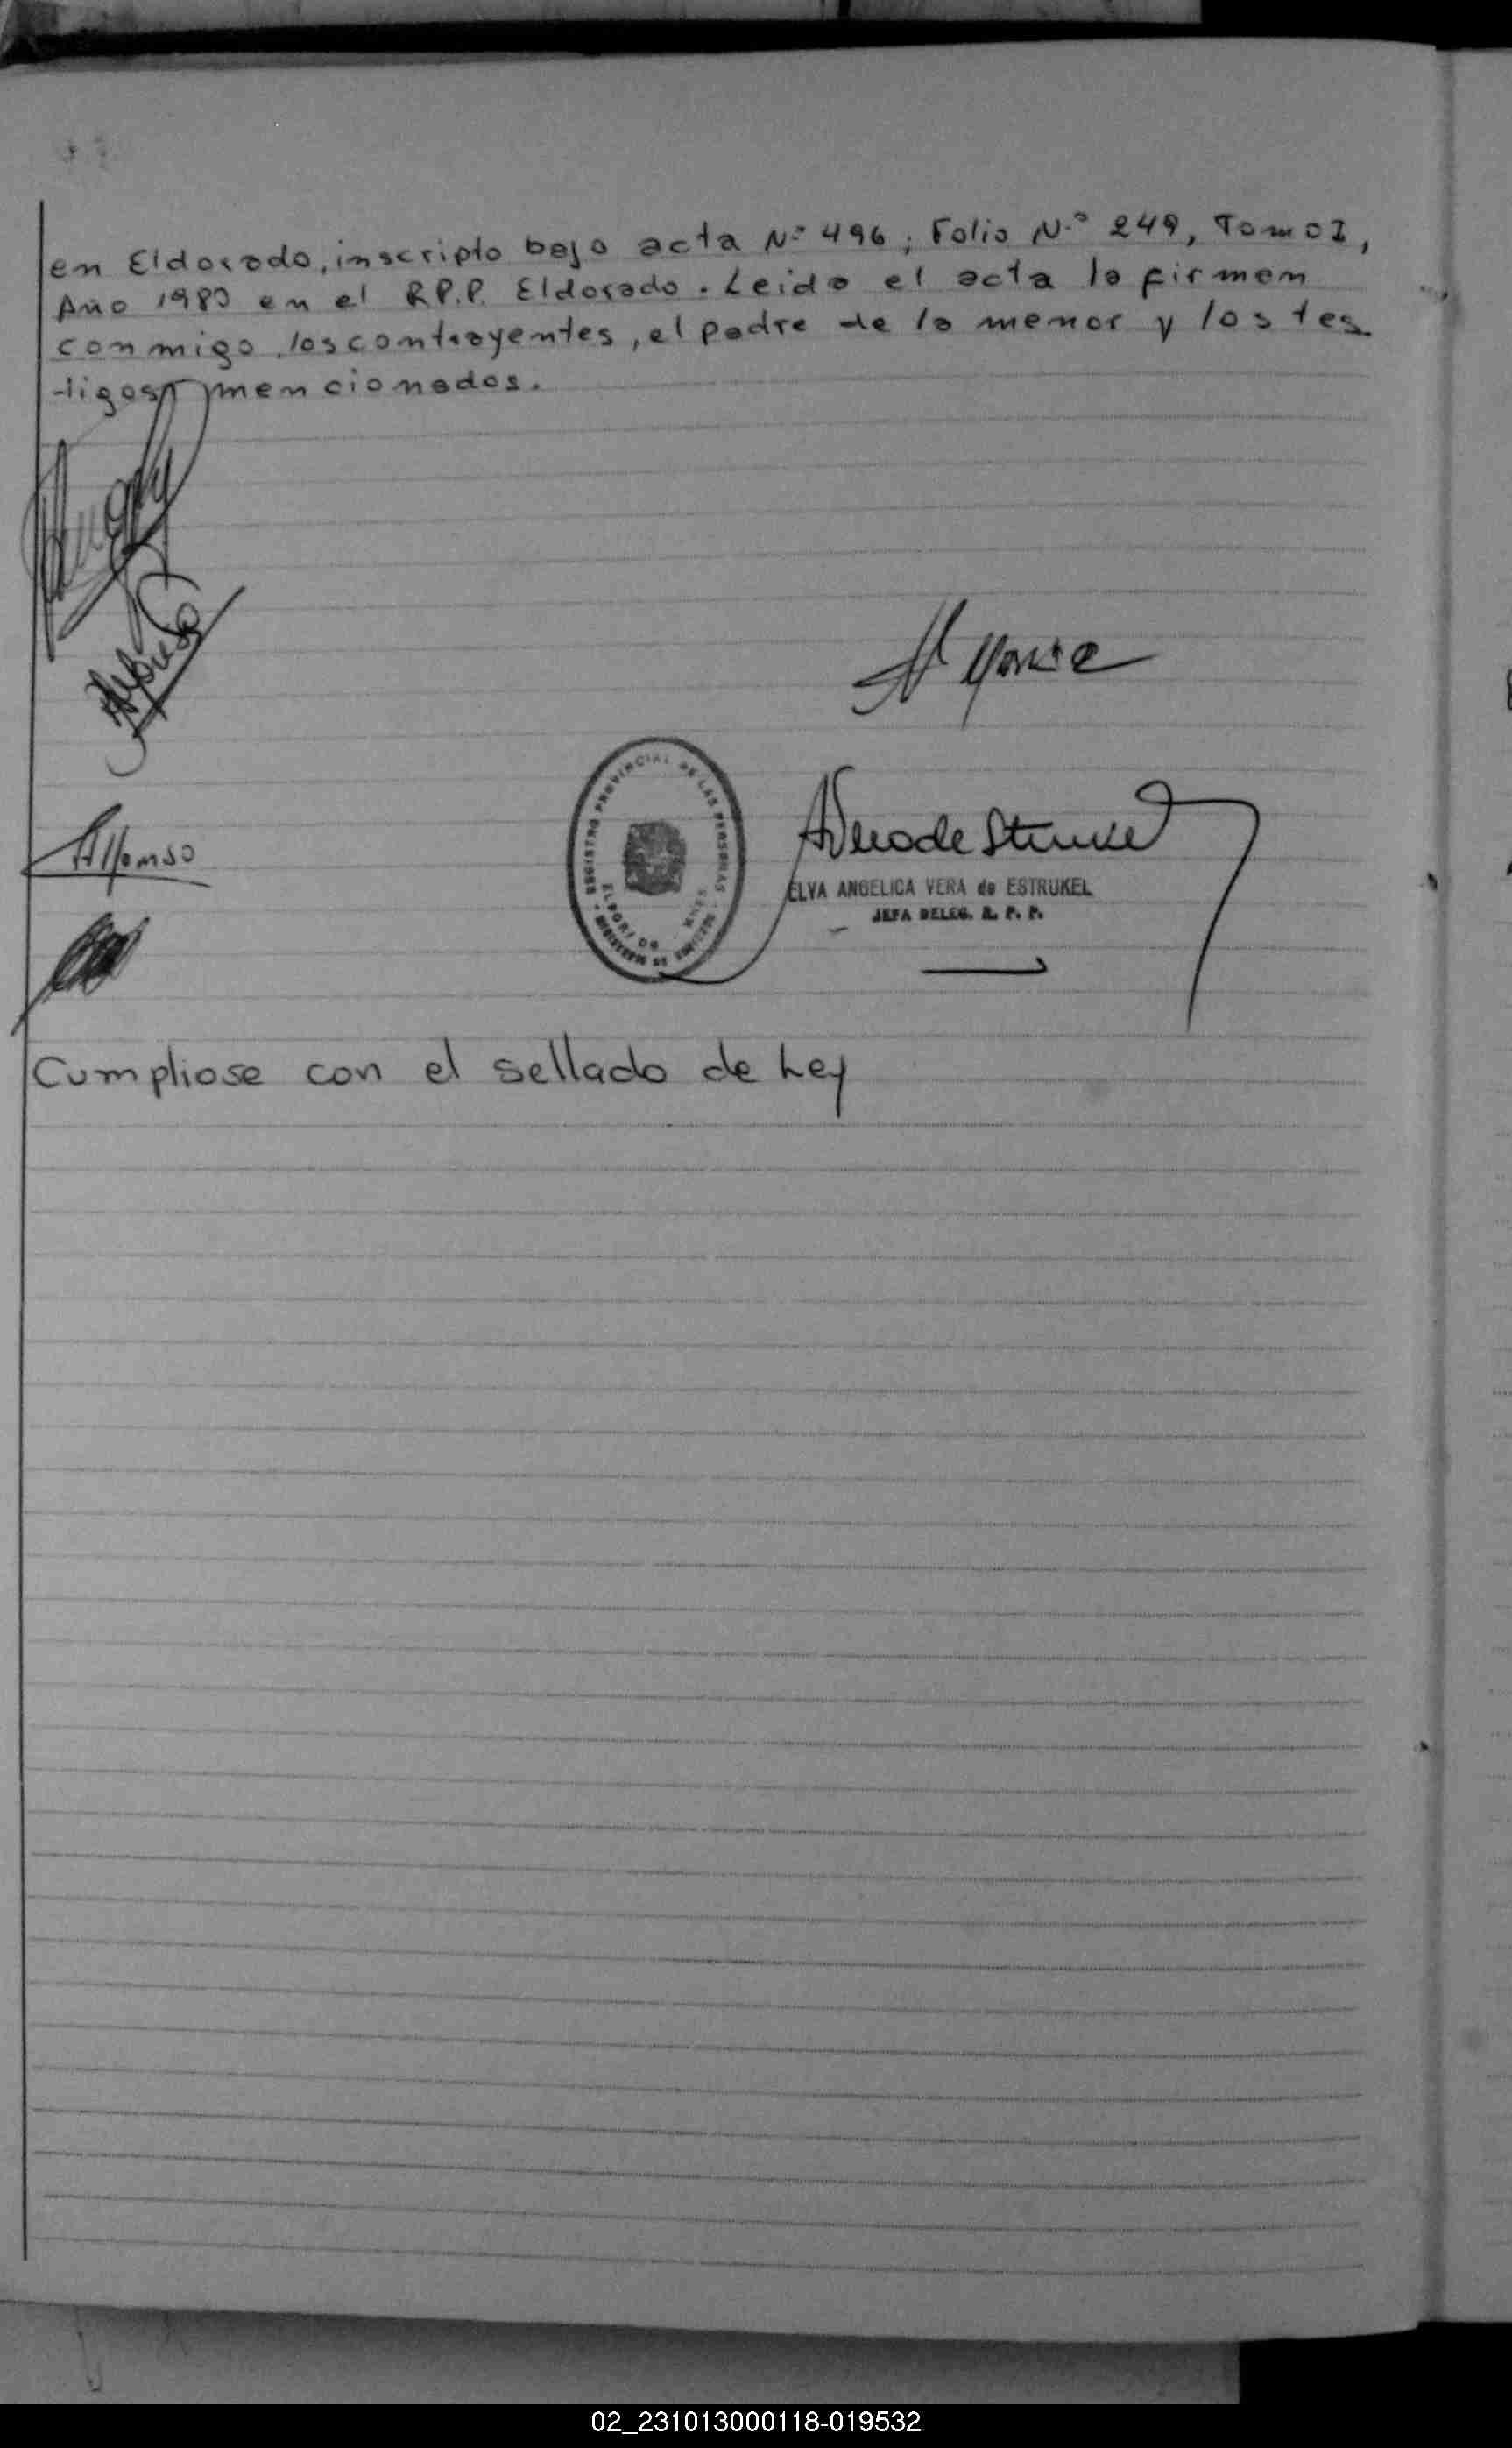 en Eldorado, inscripto bajo acta Nº 496; Folio Nº 249, Tomo I,
Año 1980 en el R.P.P. Eldorado. Leida el acta la firman
conmigo, los contrayentes, el padre de la menor y los tes
tigos mencionados.
Alfonso
REGISTRO PROVINCIAL DE LAS PERSONAS
ELDORADO
ELVA ANGELICA VERA de ESTRUKEL
JEFA DELEG. R. P. P.
Cumpliose con el sellado de Ley
02_231013000118-019532